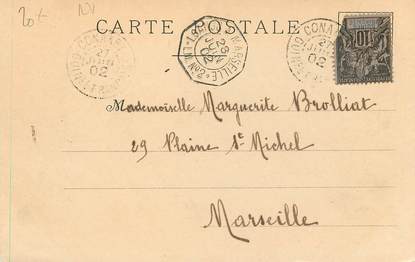 20+
CARTE POSTALE
CONA
27
JUIN
02
MARSEILLE
23
JUIN
02
27
02
10
Mademoiselle Marguerite Brolliat
29 Plaine St Michel
Marseille